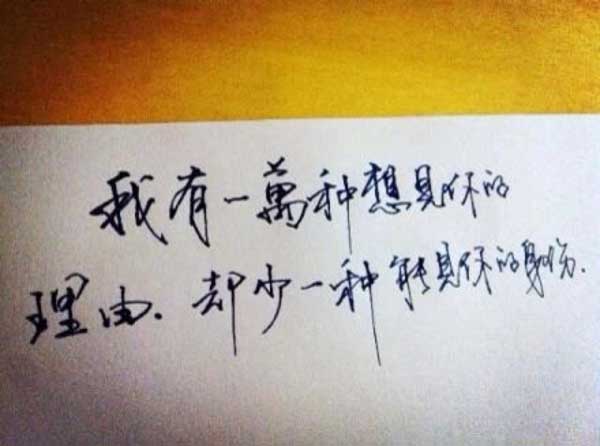 我有一萬种想見你的
理由.却少一种能見你的身份.